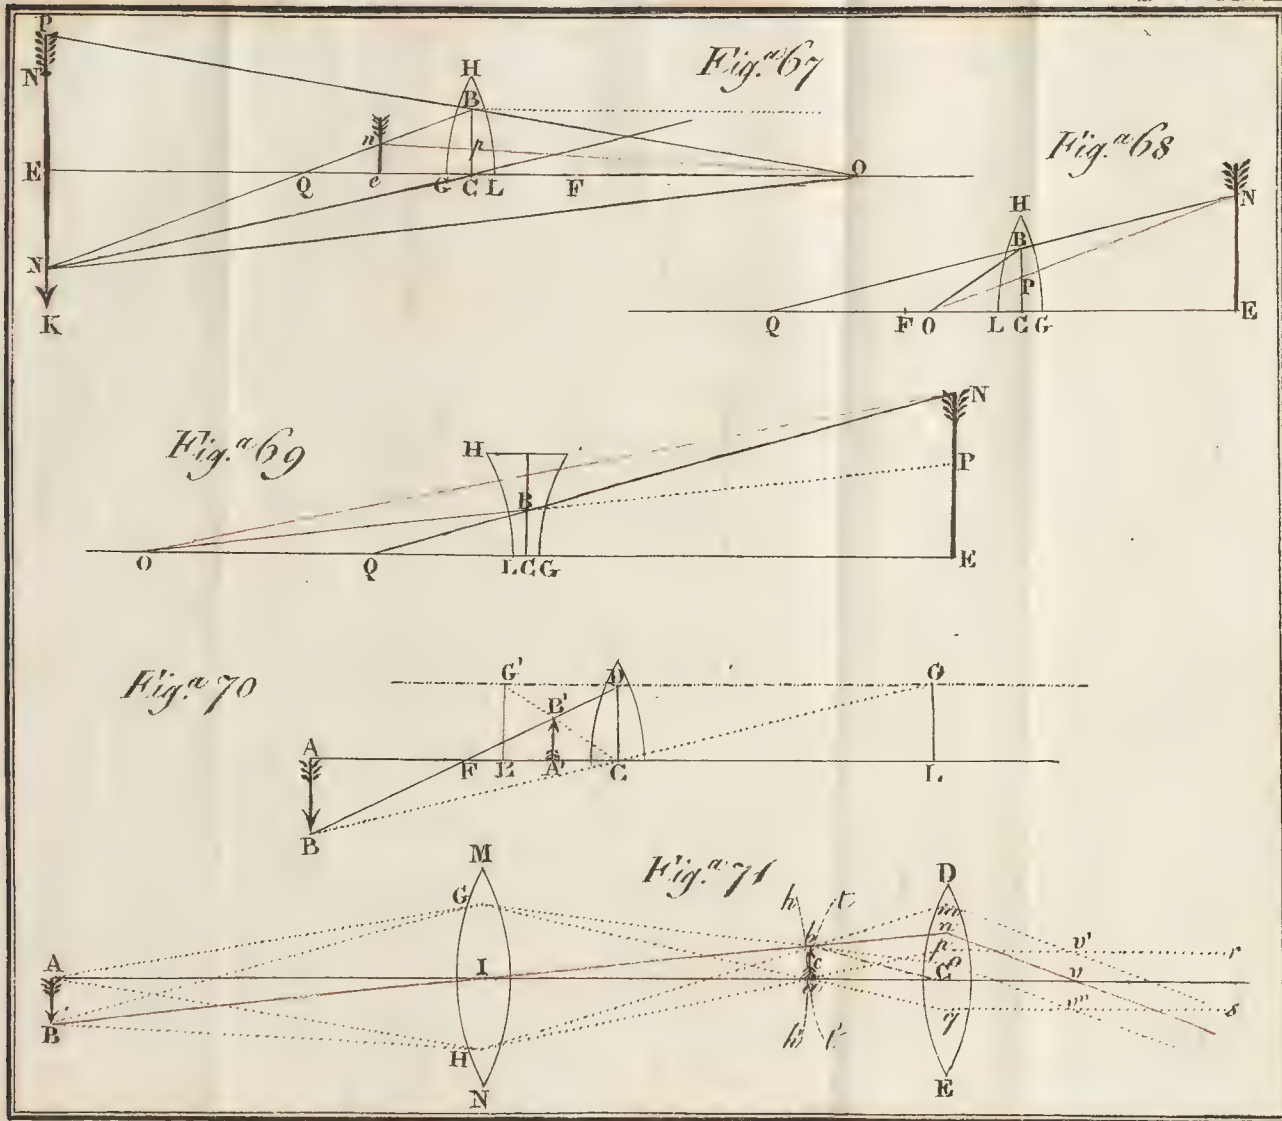 Fig.ª 67
P
N
H
B
n
p
E
Q
e
G
C
L
F
O
N
K
Fig.ª 68
H
N
B
P
Q
F
O
L
C
G
E
Fig.ª 69
N
H
P
B
O
Q
L
C
G
E
Fig.ª 70
G'
D
G
B'
A
F
A'
C
L
B
Fig.ª 71
M
D
G
h
t
b
m
n
p
v'
r
A
I
c
C
o
v
a
B
q
v"
s
H
h'
t'
N
E